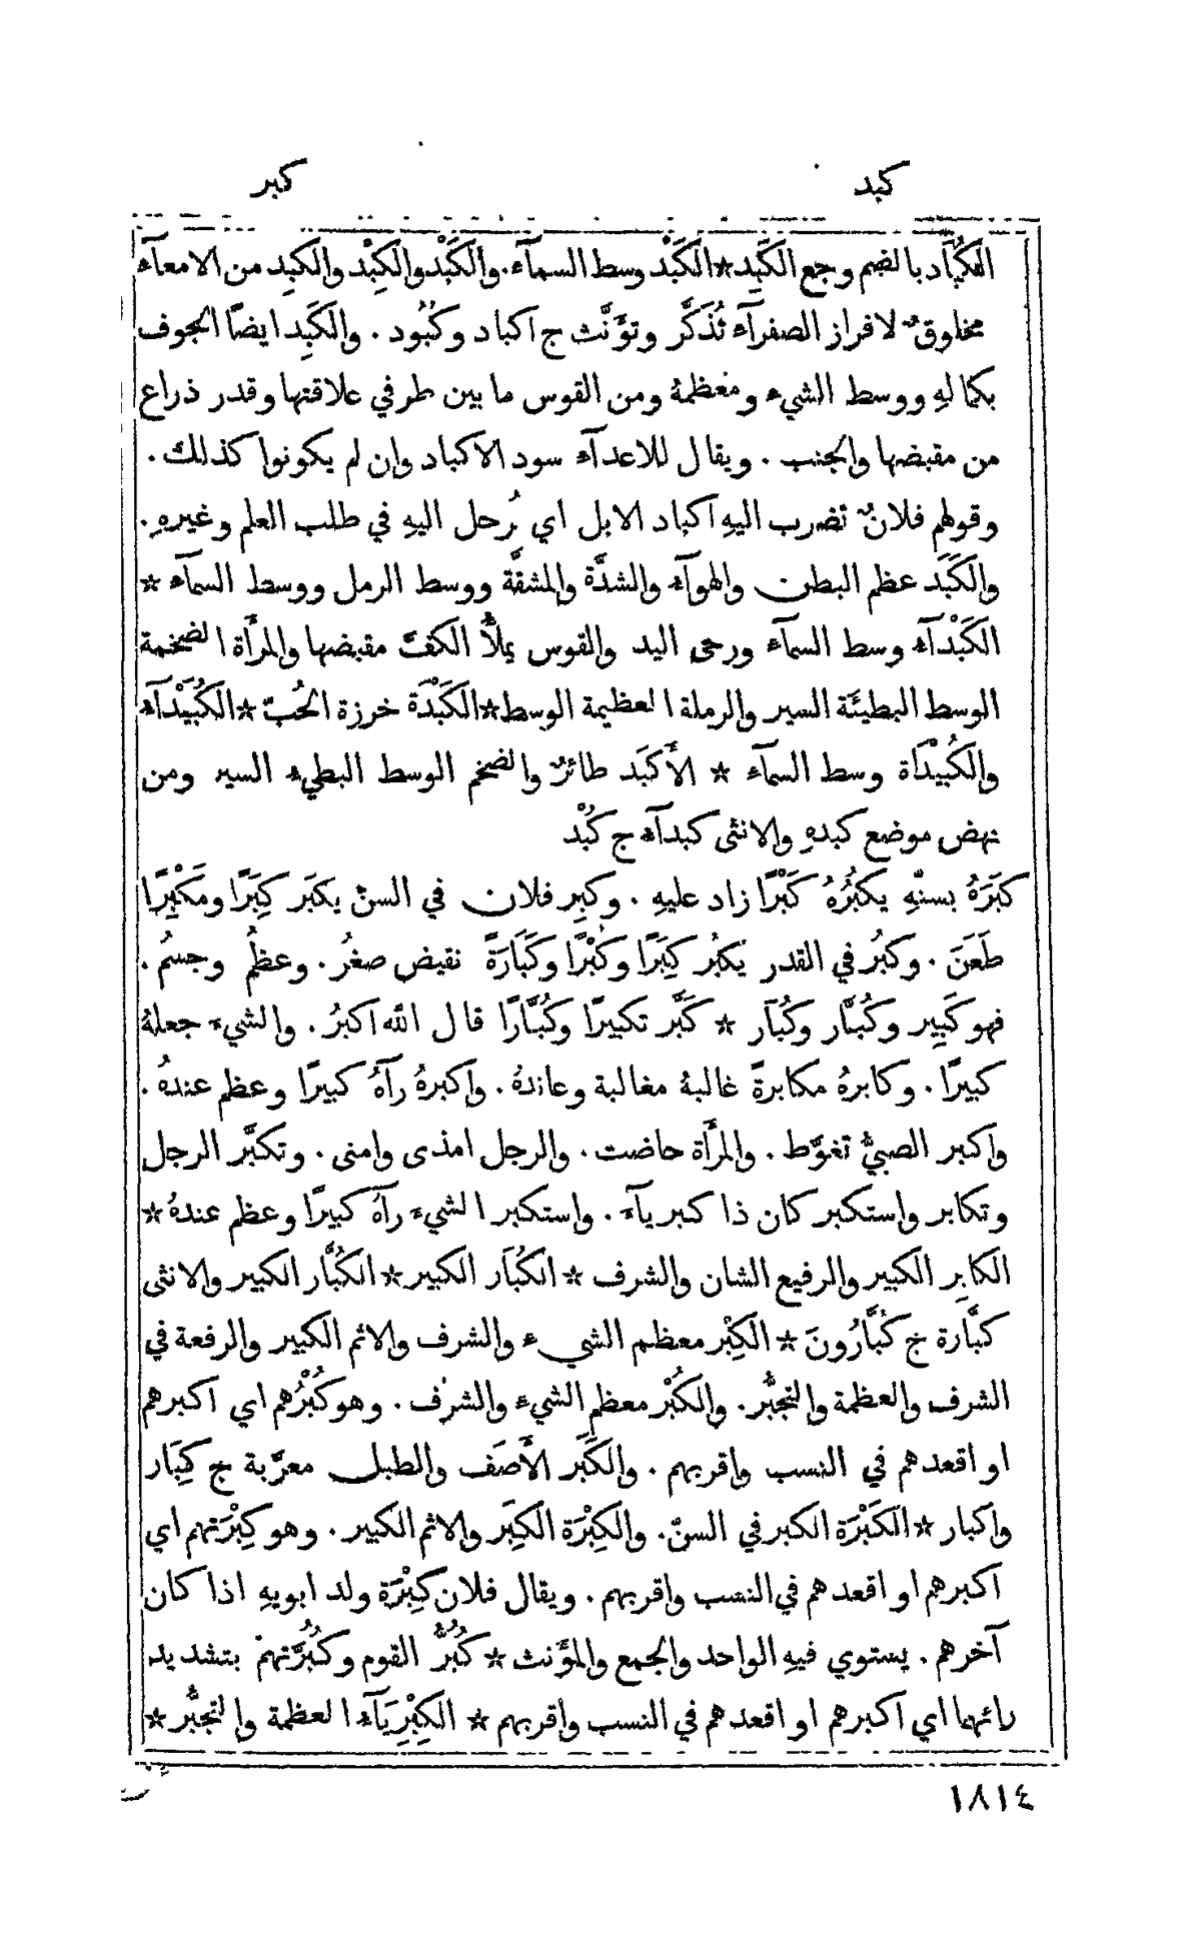 كبد كبر
الكُبَاد بالضم وجع الكَبِد * الكَبْد وسط السمآء. والكَبْد والكِبْد والكَبِد من الامعآء
مخلوقٌ لافراز الصفرآء تُذَكَّر وتؤَنَّث ج اكباد وكُبُود . والكَبِد ايضًا الجوف
بكمالهِ ووسط الشيء ومعظمهُ ومن القوس ما بين طرفي علاقتها وقدر ذراع
من مقبضها والجنب . ويقال للاعدآء سود الاكباد وإن لم يكونوا كذلك .
وقولهم فلانٌ تضرب اليهِ اكباد الابل اي يُرحل اليهِ في طلب العلم وغيرهِ .
والكَبَد عظم البطن والهوآء والشدَّة والمشقَّة ووسط الرمل ووسط السمآء *
الكَبْدآء وسط السمآء ورحى اليد والقوس يملأُ الكفّ مقبضها والمرأَة الضخمة
الوسط البطيئة السير والرملة العظيمة الوسط * الكَبْدَة خرزة الحُبّ * الكُبَيْدَآء
والكُبَيْدَاة وسط السمآء * الأَكبَد طائرٌ والضخم الوسط البطيء السير ومن
نهض موضع كبدهِ والانثى كبدآء ج كُبْد
كبَرَهُ بسنّهِ يكبُرُهُ كَبْرًا زاد عليهِ . وكبِر فلان في السنّ يكبَر كِبَرًا ومَكْبِرًا
طَعَنَ . وكبُر في القدر يَكبُر كِبَرًا وكُبْرًا وكَبَارَةً نقيض صغُر . وعظُم وجسُم .
فهو كَبِير وكُبَّار وكُبَار * كَبَّر تكبيرًا وكُبَّارًا قال الله اكبرُ . والشيء جعلهُ
كبيرًا . وكابرهُ مكابرةً غالبهُ مغالبة وعاندهُ . واكبرهُ رآهُ كبيرًا وعظم عندهُ .
واكبر الصبيُّ تغوَّط . والمرأَة حاضت . والرجل امذى وامنى . وتكبَّر الرجل
وتكابر واستكبر كان ذا كبريآء . واستكبر الشيء رآهُ كبيرًا وعظم عندهُ *
الكابِر الكبير والرفيع الشان والشرف * الكُبَار الكبير * الكُبَّار الكبير والانثى
كبَّارة ج كُبَّارُونَ * الكِبْر معظم الشيء والشرف والاثم الكبير والرفعة في
الشرف والعظمة والتجبُّر . والكُبْر معظم الشيء والشرف . وهو كُبْرُهم اي اكبرهم
او اقعدهم في النسب واقربهم . والكَبَر الأَصَف والطبل معرَّبة ج كِبَار
واكبار * الكَبْرَة الكبر في السنّ . والكِبْرَة الكِبَر والاثم الكبير . وهو كِبْرَتهم اي
اكبرهم او اقعدهم في النسب واقربهم . ويقال فلان كِبْرَة ولد ابويهِ اذا كان
آخرهم . يستوي فيهِ الواحد والجمع والمؤَنث * كُبُرُّ القوم وكُبُرَّتهم بتشديد
رائهما اي اكبرهم او اقعدهم في النسب واقربهم * الكِبْرِيَآء العظمة والتجبُّر *
١٨١٤